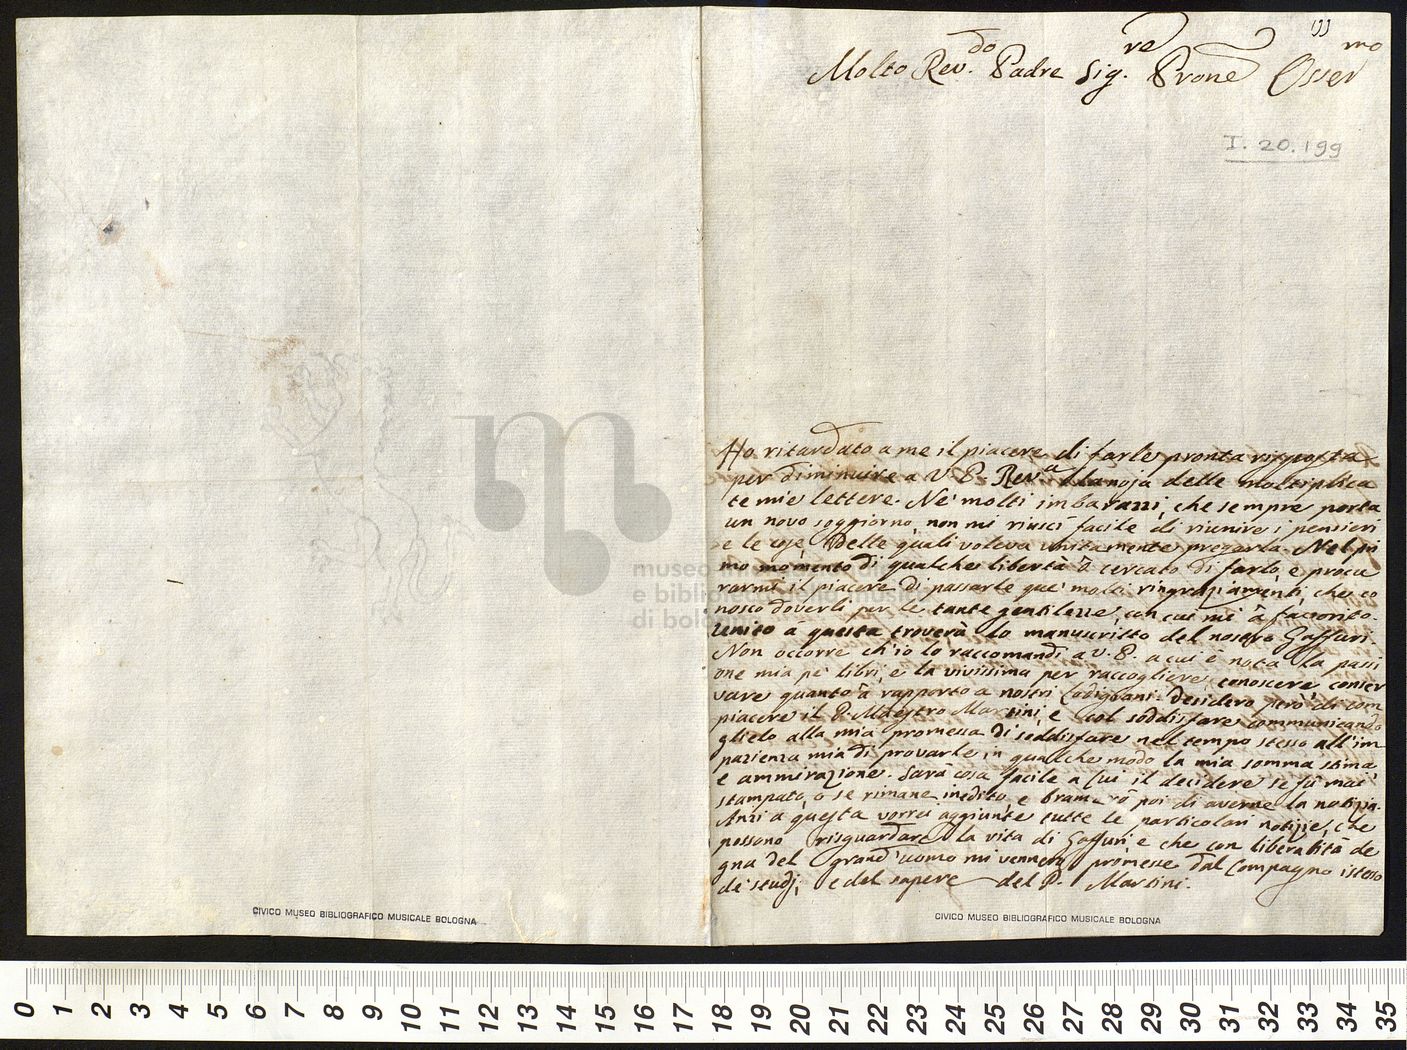 199
Molto Rev.do Padre Sig.re Prone Osser mo
I. 20.199
Ho ritardato a me il piacere di farle pronta risposta
per diminuire a V. P. Reva la noja delle moltiplica
te mie lettere. Ne' molti imbarazzi, che sempre porta
un novo soggiorno, non mi riuscì facile di riunire i pensieri
e le cose, delle quali voleva unitamente pregarla. Nel pri
mo momento di qualche libertà ò cercato di farlo, e procu
rarmi il piacere di passarle que' molti ringraziamenti, che co
nosco doverli per le tante gentilezze, con cui mi à favorito.
Unito a questa troverà lo manuscritto del nostro Gaffuri.
Non occorre ch'io lo raccomandi a V. P. a cui è nota la passi
one mia pe' libri, e la vivissima per raccogliere, conoscere conser
vare quanto à rapporto a nostri Lodigiani. Desidero però di com
piacere il P. Maestro Martini, e col soddisfare communicando
glielo alla mia promessa di soddisfare nel tempo stesso all'im
pazienza mia di provarle in qualche modo la mia somma stima,
e ammirazione. Sarà cosa facile a Lui il decidere se fù mai
stampato, o se rimane inedito, e bramerò poi di averne la notizia.
Anzi a questa vorrei aggiunte tutte le particolari notizie, che
possono risguardare la vita di Gaffuri, e che con liberalità de
gna del grand'uomo mi vennero promesse dal Compagno istesso
de' studj, e del sapere del P. Martini.
museo
e biblioteca
di bologna
CIVICO MUSEO BIBLIOGRAFICO MUSICALE BOLOGNA
CIVICO MUSEO BIBLIOGRAFICO MUSICALE BOLOGNA
0 1 2 3 4 5 6 7 8 9 10 11 12 13 14 15 16 17 18 19 20 21 22 23 24 25 26 27 28 29 30 31 32 33 34 35